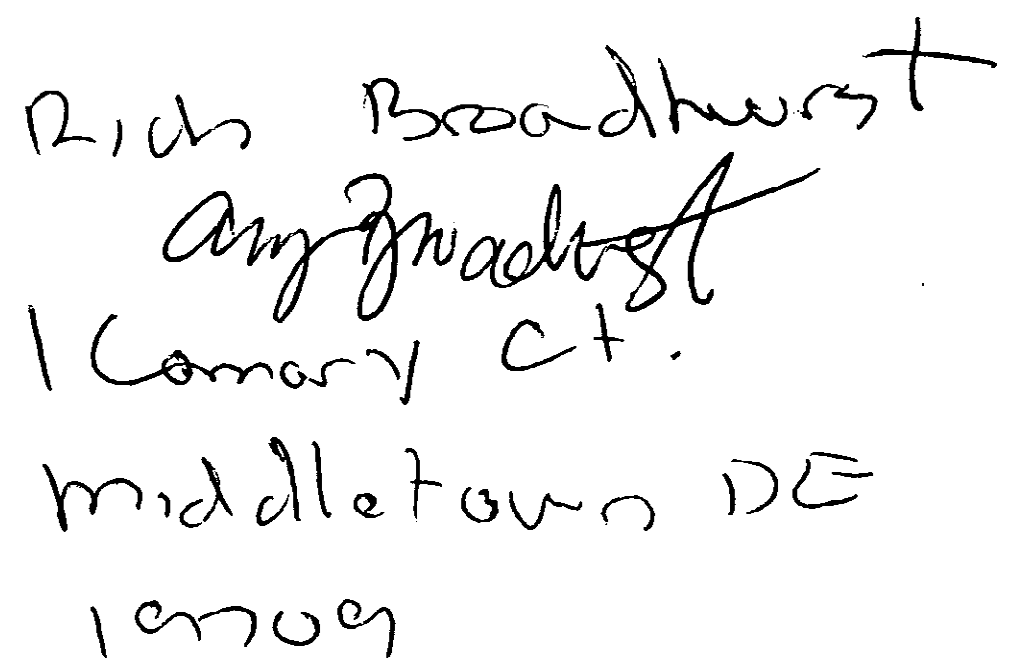 Rich Broadhurst
Amy Broadhurst
1 Canary Ct.
Middletown DE
19709